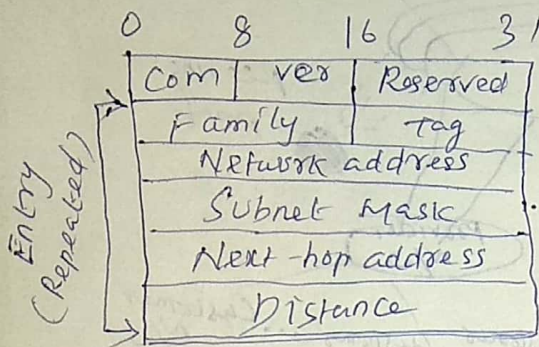 0 8 16 31
Com ver Reserved
Family Tag
Network address
Subnet Mask
Next-hop address
Distance
Entry
(Repeated)